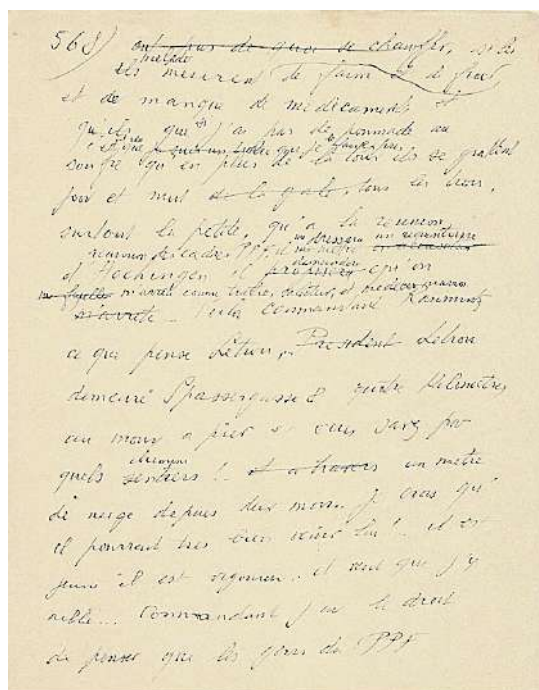 568) ont pas de quoi se chauffer, si les
malades
meurent de faim et de froid
et de manque de medicaments et
qu'ils que si j'ai pas de pommade au
soufre qu'en plus de la toux ils se grattent
jour et nuit de la gale, tous les trois,
surtout la petite, qu'à la réunion
reunion des cadres PPF
d'Hechingen il proposera qu'on
m'arrete comme traitre, saboteur, et
m'arrete - Voila commandant
ce que pense Letrou,, President Letrou
demeure Spassergasse 8 quatre kilometres
au moins a pied et vous savez par
chemins
quels sentiers !.. et a travers un metre
de neige depuis deux mois.. je crois qu'
il pourrait tres bien venir lui !.. il est
jeune il est vigoureux.. il veut que j'y
aille... Commandant j'ai le droit
de penser que les gens du PPF